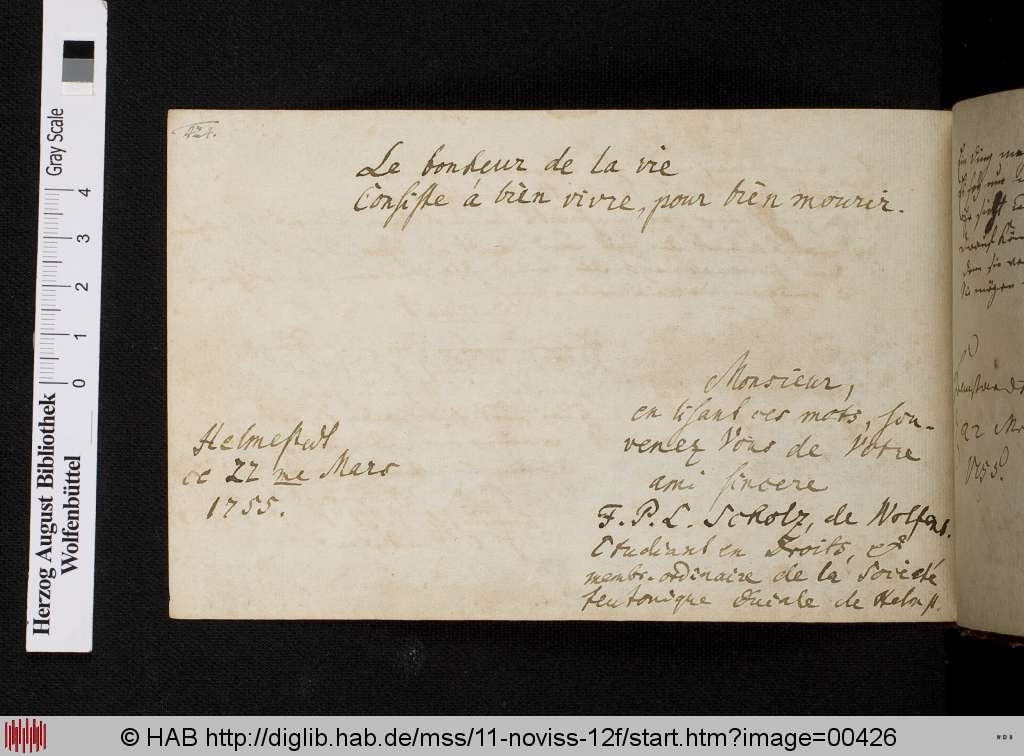 424.
Le bonheur de la vie
Consiste á bien vivre, pour bien mourir.
Monsieur,
en lisant ces mots, sou-
venez Vous de Votre
ami sincere
F. P. L. Scholz, de Wolfenb.
Etudiant en Droits, &
membr. ordinaire de la Societé
teutonique Ducale de Helmst.
Helmestedt
ce 22 me Mars
1755.
1755.
Herzog August Bibliothek
Wolfenbüttel
Gray Scale
0 1 2 3 4
© HAB http://diglib.hab.de/mss/11-noviss-12f/start.htm?image=00426